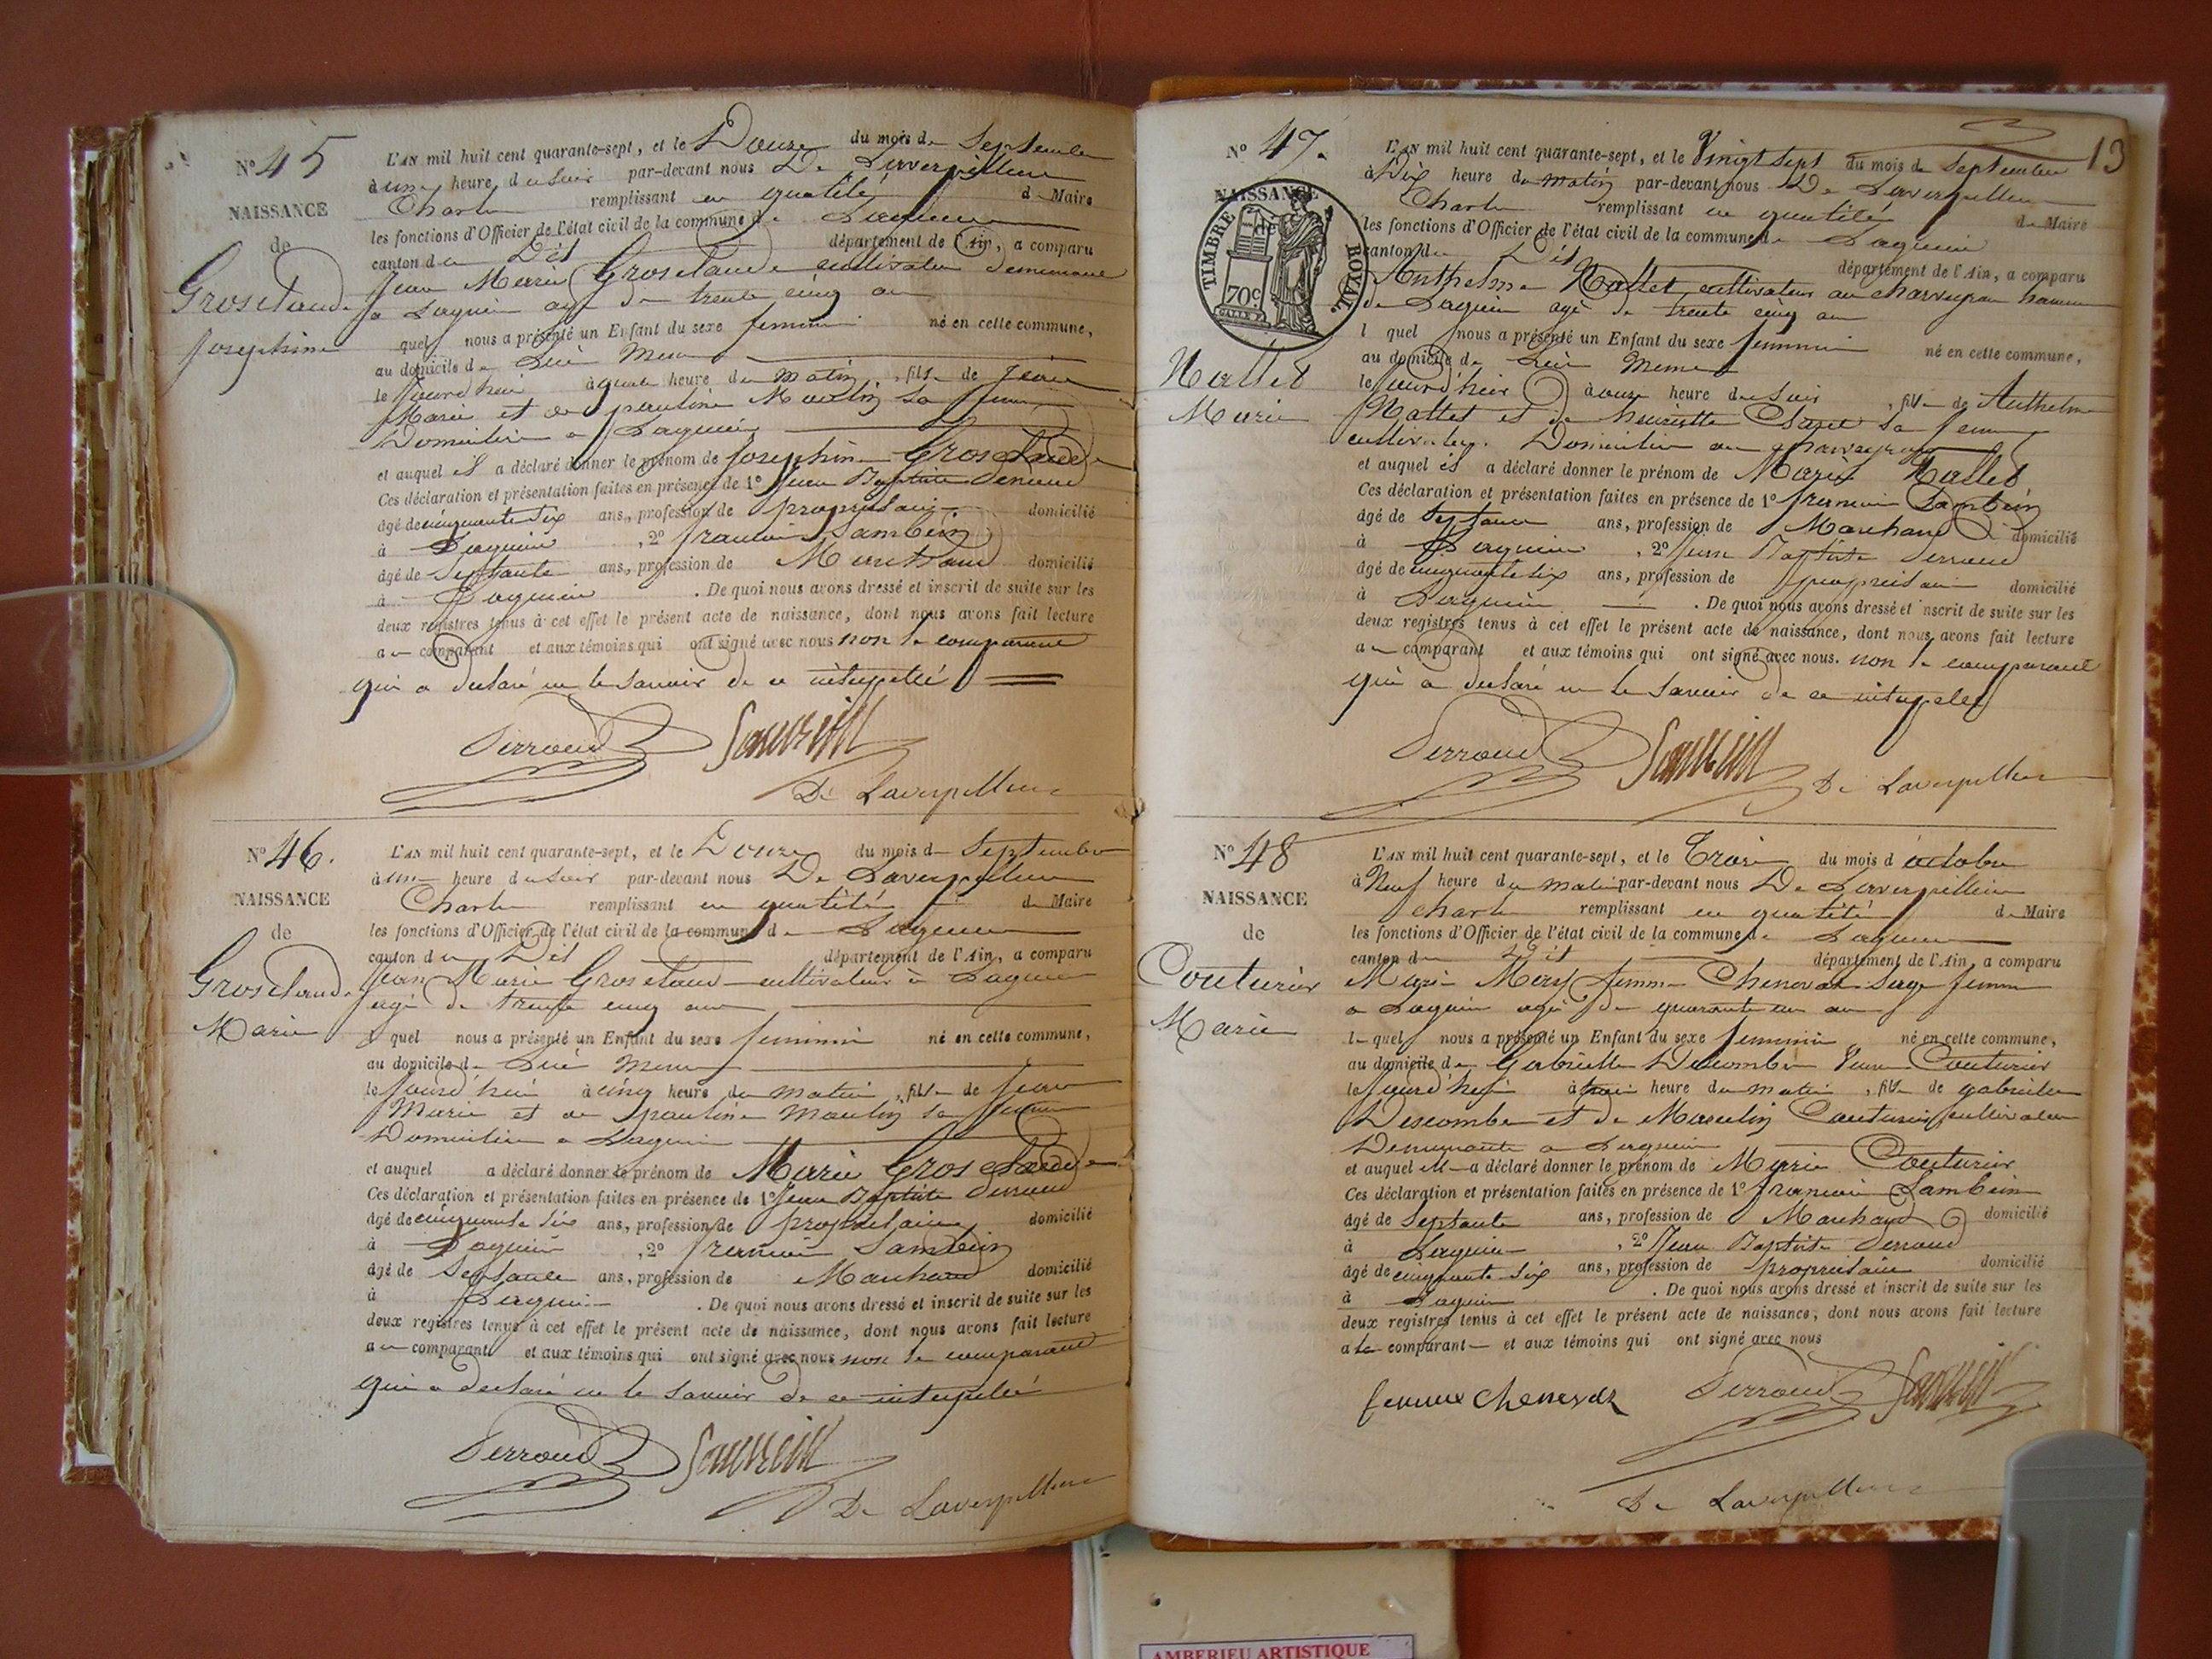 N° 45
NAISSANCE
de
Grosclaude
Josephine
L'AN mil huit cent quarante-sept, et le Douze du mois de Septembre
à une heure du soir par-devant nous De Laverpilliere
Charle remplissant en qualité de Maire
les fonctions d'Officier de l'état civil de la commune de Lagnieu
canton du Dit département de l'Ain, a comparu
Jean Marie Grosclaude cultivateur demeurant
a Lagnieu agé de trente cinq an
quel nous a présenté un Enfant du sexe feminin né en cette commune,
au domicile de Lui meme
le jourd'hui à quatre heure du matin, fille de Jean
Marie et de pauline Moulin sa femme
Domicilié a Lagnieu
et auquel il a déclaré donner le prénom de Josephine Grosclaude
Ces déclaration et présentation faites en présence de 1° Jean Baptiste Perroud
âgé de cinquante six ans, profession de propriétaire domicilié
à Lagnieu, 2° francois Sambein
âgé de Septante ans, profession de Marchand domicilié
à Lagnieu. De quoi nous avons dressé et inscrit de suite sur les
deux registres tenus à cet effet le présent acte de naissance, dont nous avons fait lecture
au comparant et aux témoins qui ont signé avec nous non le comparant
qui a declaré ne le savoir de ce interpellé
Perroud Sambein
De Laverpilliere
N° 46.
NAISSANCE
de
Grosclaude
Marie
L'AN mil huit cent quarante-sept, et le Douze du mois de Septembre
à une heure du soir par-devant nous De Laverpilliere
Charle remplissant en qualité de Maire
les fonctions d'Officier de l'état civil de la commune de Lagnieu
canton du Dit département de l'Ain, a comparu
Jean Marie Grosclaude cultivateur à Lagnieu
agé de trente cinq an
quel nous a présenté un Enfant du sexe feminin né en cette commune,
au domicile de Lui meme
le jourd'hui à cinq heure du matin, fille de Jean
Marie et de pauline Moulin sa femme
Domicilié a Lagnieu
et auquel a déclaré donner le prénom de Marie Grosclaude
Ces déclaration et présentation faites en présence de 1° Jean Baptiste Perroud
âgé de cinquante six ans, profession de propriétaire domicilié
à Lagnieu, 2° francois Sambein
âgé de Septante ans, profession de Marchand domicilié
à Lagnieu. De quoi nous avons dressé et inscrit de suite sur les
deux registres tenus à cet effet le présent acte de naissance, dont nous avons fait lecture
au comparant et aux témoins qui ont signé avec nous non le comparant
qui a declaré ne le savoir de ce interpellé
Perroud Sambein
De Laverpilliere
13
N° 47.
NAISSANCE
de
TIMBRE ROYAL
70c
Nallet
Marie
L'AN mil huit cent quarante-sept, et le Vingt sept du mois de Septembre
à Dix heure du matin par-devant nous De Laverpilliere
Charle remplissant en qualité de Maire
les fonctions d'Officier de l'état civil de la commune de Lagnieu
canton du Dit département de l'Ain, a comparu
Anthelme Nallet cultivateur au hameau
de Lagnieu agé de trente cinq an
l quel nous a présenté un Enfant du sexe feminin né en cette commune,
au domicile de Lui meme
le jourd'hui à onze heure du soir, fille de Anthelme
Nallet et de henriette sa femme
cultivateur Domicilié au
et auquel il a déclaré donner le prénom de Marie Nallet
Ces déclaration et présentation faites en présence de 1° francois Sambein
âgé de Septante ans, profession de Marchand domicilié
à Lagnieu, 2° Jean Baptiste Perroud
âgé de cinquante six ans, profession de propriétaire domicilié
à Lagnieu. De quoi nous avons dressé et inscrit de suite sur les
deux registres tenus à cet effet le présent acte de naissance, dont nous avons fait lecture
au comparant et aux témoins qui ont signé avec nous. non le comparant
qui a declaré ne le savoir de ce interpelé
Perroud Sambein De Laverpilliere
N° 48
NAISSANCE
de
Couturier
Marie
L'AN mil huit cent quarante-sept, et le Trois du mois d octobre
à Neuf heure du matin par-devant nous De Laverpilliere
Charle remplissant en qualité de Maire
les fonctions d'Officier de l'état civil de la commune de Lagnieu
canton du Dit département de l'Ain, a comparu
Marie femme Chenavaz Sage femme
a Lagnieu agé de quarante un an
le quel nous a présenté un Enfant du sexe feminin né en cette commune,
au domicile de Gabrielle Descombe Couturier
le jourd'hui à trois heure du matin, fille de gabrielle
Descombe et de Marcelin Couturier cultivateur
Demeurante a Lagnieu
et auquel a déclaré donner le prénom de Marie Couturier
Ces déclaration et présentation faites en présence de 1° francois Sambein
âgé de Septante ans, profession de Marchand domicilié
à Lagnieu, 2° Jean Baptiste Perroud
âgé de cinquante six ans, profession de propriétaire domicilié
à Lagnieu. De quoi nous avons dressé et inscrit de suite sur les
deux registres tenus à cet effet le présent acte de naissance, dont nous avons fait lecture
a la comparant et aux témoins qui ont signé avec nous
femme Chenevaz Perroud Sambein
De Laverpilliere
AMBERIEU ARTISTIQUE